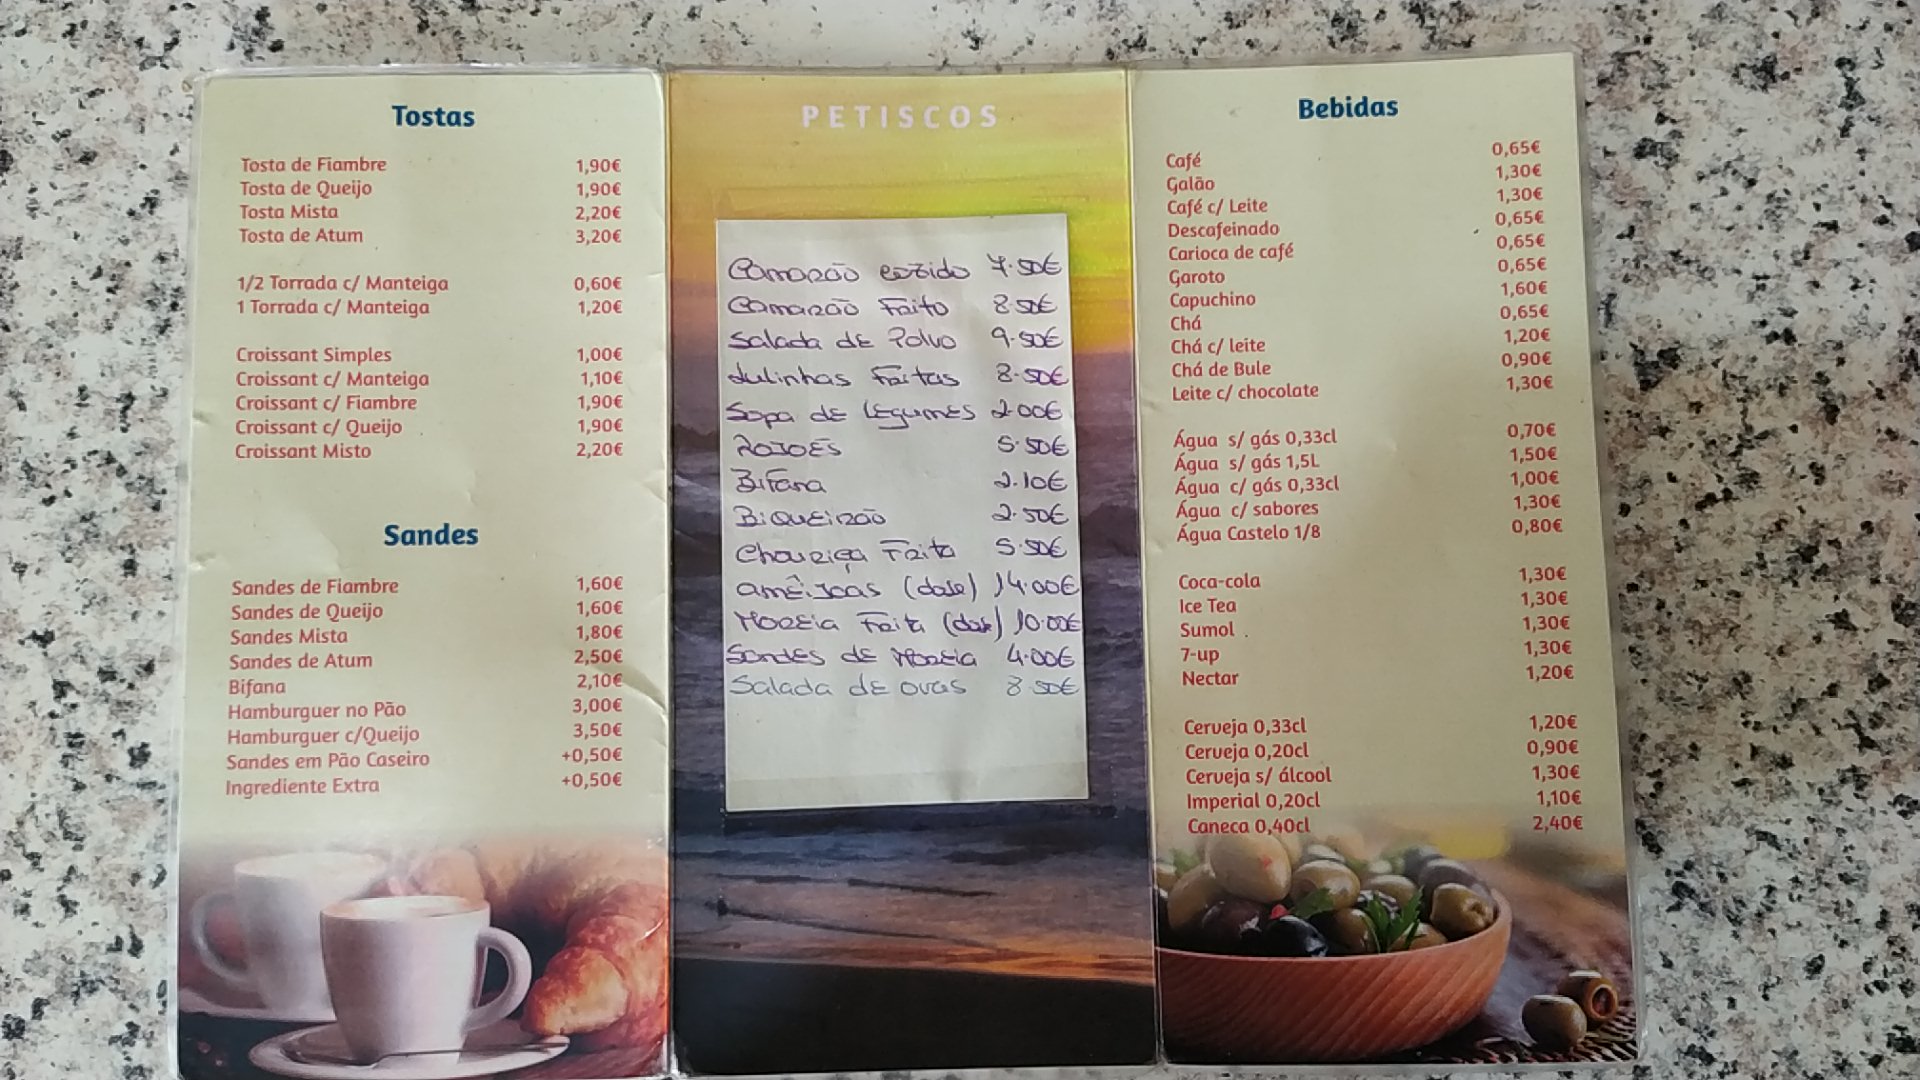 Tostas
Tosta de Fiambre 1,90€
Tosta de Queijo 1,90€
Tosta Mista 2,20€
Tosta de Atum 3,20€
1/2 Torrada c/ Manteiga 0,60€
1 Torrada c/ Manteiga 1,20€
Croissant Simples 1,00€
Croissant c/ Manteiga 1,10€
Croissant c/ Fiambre 1,90€
Croissant c/ Queijo 1,90€
Croissant Misto 2,20€
Sandes
Sandes de Fiambre 1,60€
Sandes de Queijo 1,60€
Sandes Mista 1,80€
Sandes de Atum 2,50€
Bifana 2,10€
Hamburguer no Pão 3,00€
Hamburguer c/Queijo 3,50€
Sandes em Pão Caseiro +0,50€
Ingrediente Extra +0,50€
PETISCOS
Camarão cozido 7.50€
Camarão Frito 8.50€
Salada de Polvo 9.50€
Lulinhas Fritas 8.50€
Sopa de Legumes 2.00€
Rojoes 5.50€
Bifana 2.10€
Biqueirão 2.50€
Chouriça Frita 5.50€
Amêijoas (dose) 14.00€
Moreia Frita (dose) 10.00€
Sandes de Moreia 4.00€
Salada de ovas 8.50€
Bebidas
Café 0,65€
Galão 1,30€
Café c/ Leite 1,30€
Descafeinado 0,65€
Carioca de café 0,65€
Garoto 0,65€
Capuchino 1,60€
Chá 0,65€
Chá c/ leite 1,20€
Chá de Bule 0,90€
Leite c/ chocolate 1,30€
Água s/ gás 0,33cl 0,70€
Água s/ gás 1,5L 1,50€
Água c/ gás 0,33cl 1,00€
Água c/ sabores 1,30€
Água Castelo 1/8 0,80€
Coca-cola 1,30€
Ice Tea 1,30€
Sumol 1,30€
7-up 1,30€
Nectar 1,20€
Cerveja 0,33cl 1,20€
Cerveja 0,20cl 0,90€
Cerveja s/ álcool 1,30€
Imperial 0,20cl 1,10€
Caneca 0,40cl 2,40€